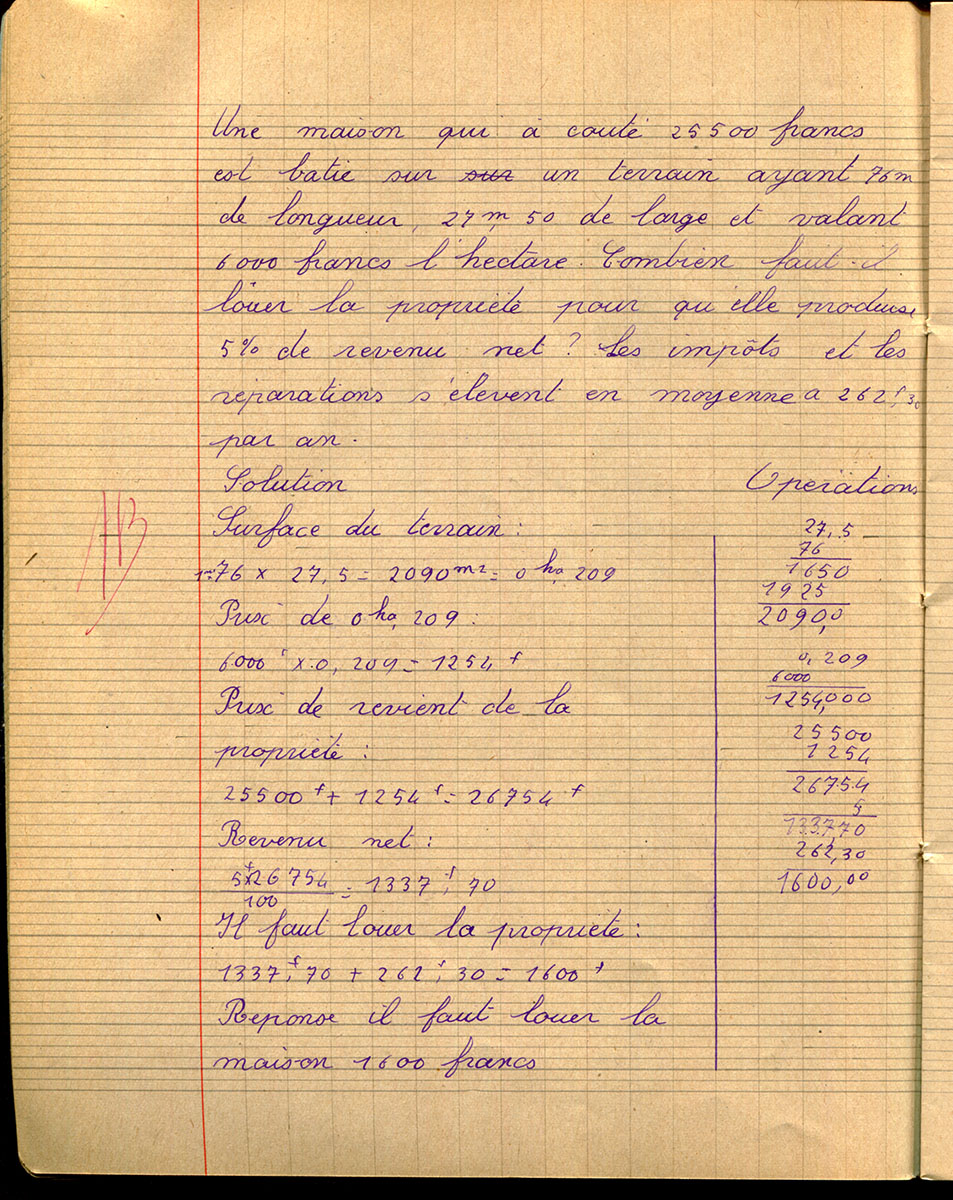 Une maison qui à couté 25500 francs
est batie sur sur un terrain ayant 76 m
de longueur, 27 m, 50 de large et valant
6000 francs l'hectare. Combien faut-il
louer la propriété pour qu'elle produise
5% de revenu net ? Les impôts et les
réparations s'élèvent en moyenne a 262 f, 30
par an.
Solution
Surface du terrain :
1m² 76 × 27, 5 = 2090 m2 = 0 ha, 209
Prix de 0 ha, 209 :
6000 f × 0, 209 = 1254 f
Prix de revient de la
propriété :
25500 f + 1254 f = 26754 f
Revenu net :
5 f × 26754
100
= 1337 f, 70
Il faut louer la propriété :
1337 f, 70 + 262 f, 30 = 1600 f
Réponse il faut louer la
maison 1600 francs
Opérations
27, 5
76
1650
1925
2090,0
0, 209
6000
1254,000
25500
1254
26754
5
1337,70
262,30
1600,00